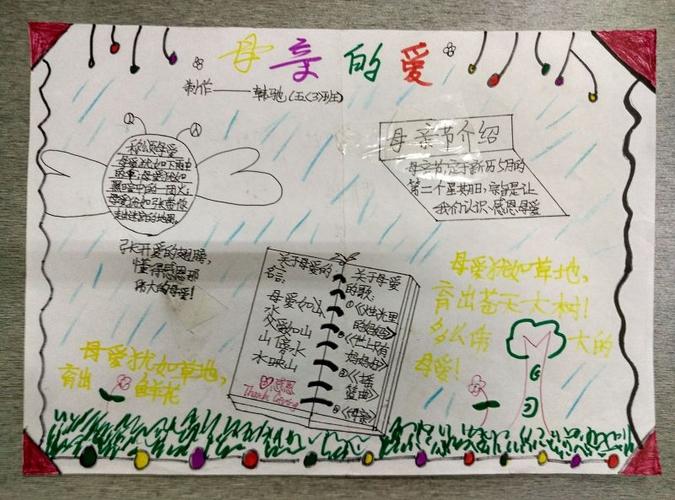 母亲的爱
制作——韩驰(五(3)班)
母亲节介绍
母亲节定于新历5月的
第二个星期日,宗旨是让
我们认识、感恩母爱
母爱犹如
张开爱的翅膀,
懂得感恩那
伟大的母爱!
关于母爱的
名言:
母爱如山
水
父爱如山
山傍水
水映山
感恩
Thanks Giving
关于母爱
的歌:
①《烛光里
的妈妈》
②《世上只有
妈妈好》
③《摇
篮曲》
④《母亲》
母爱犹如草地,
育出苍天大树!
多么伟大的
母爱!
母爱犹如草地,
育出鲜花